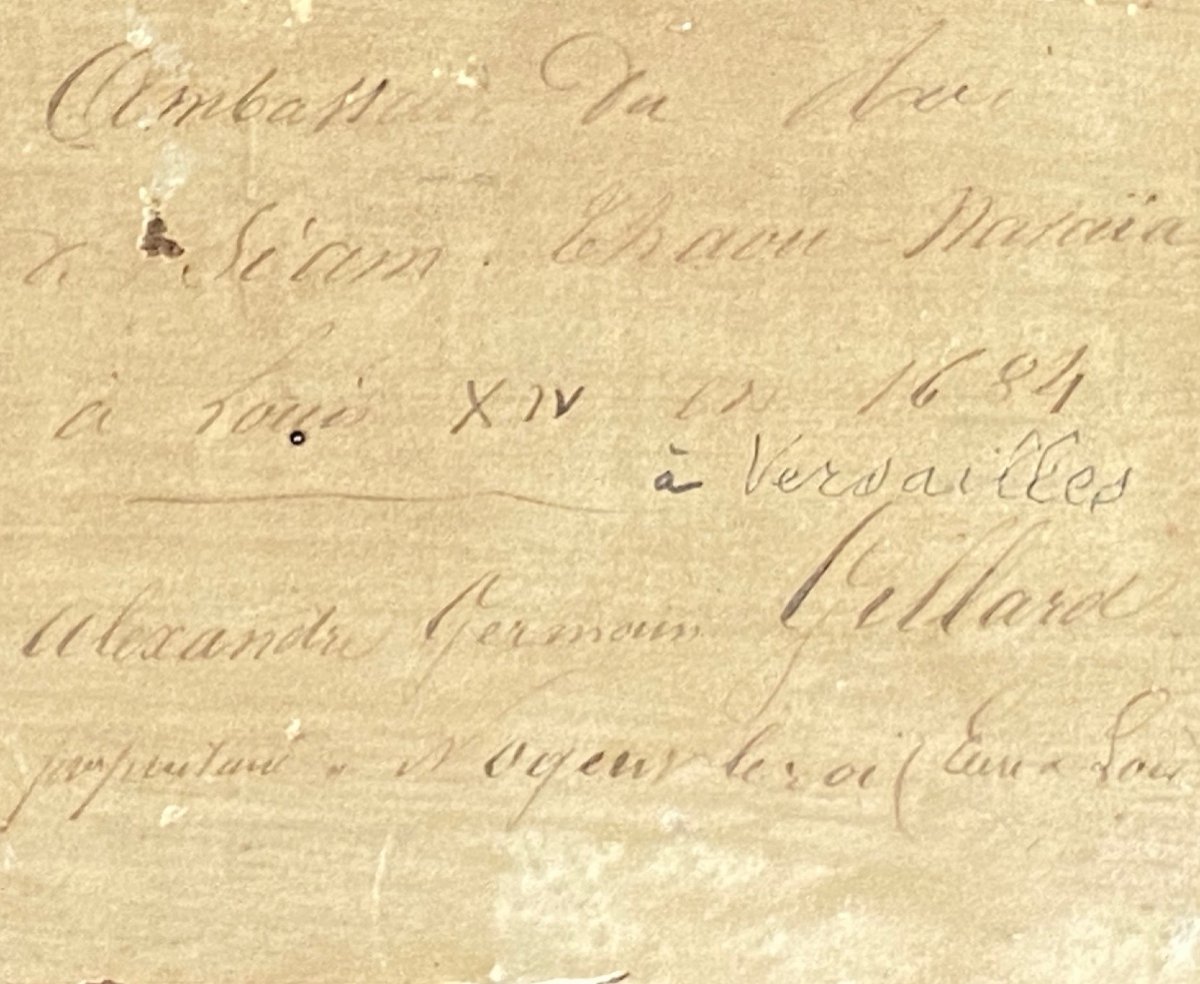 Ambassade Du Roi
de Siam. Chaou-Naraïa
à Louis XIV en 1684
à Versailles
Alexandre Germain Gillard
propriétaire à Nogent le roi (Eure & Loir